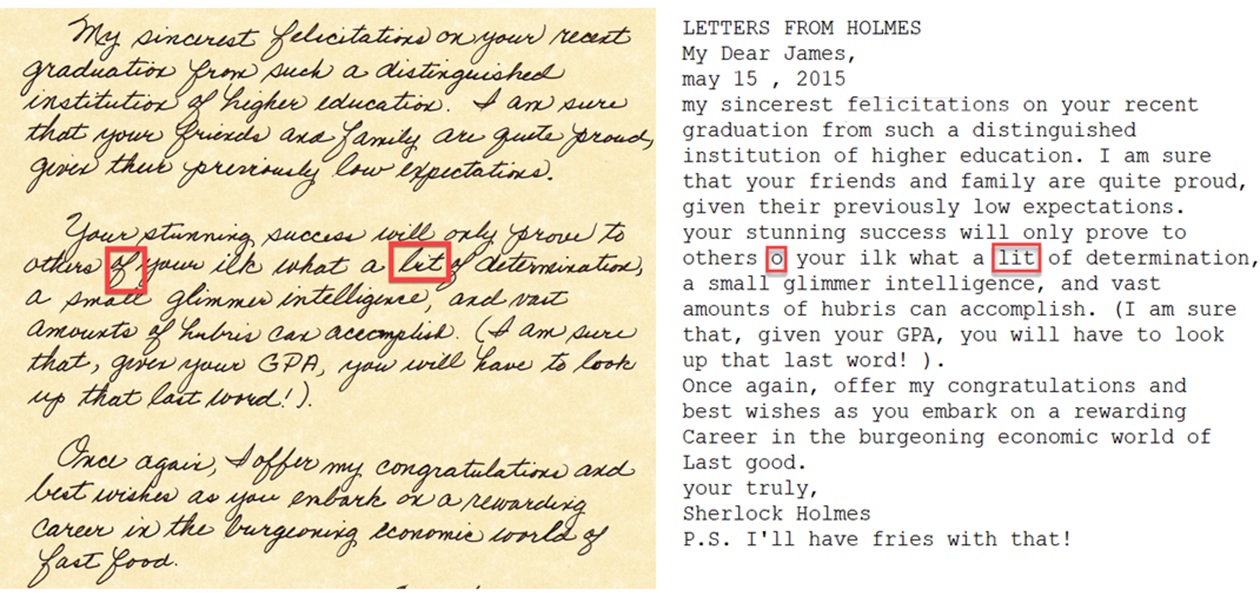 My sincerest felicitations on your recent
graduation from such a distinguished
institution of higher education. I am sure
that your friends and family are quite proud,
given their previously low expectations.
Your stunning success will only prove to
others of your ilk what a bit of determination,
a small glimmer intelligence, and vast
amounts of hubris can accomplish. (I am sure
that, given your GPA, you will have to look
up that last word!).
Once again, I offer my congratulations and
best wishes as you embark on a rewarding
career in the burgeoning economic world of
fast food.
LETTERS FROM HOLMES
My Dear James,
may 15 , 2015
my sincerest felicitations on your recent
graduation from such a distinguished
institution of higher education. I am sure
that your friends and family are quite proud,
given their previously low expectations.
your stunning success will only prove to
others o your ilk what a lit of determination,
a small glimmer intelligence, and vast
amounts of hubris can accomplish. (I am sure
that, given your GPA, you will have to look
up that last word! ).
Once again, offer my congratulations and
best wishes as you embark on a rewarding
Career in the burgeoning economic world of
Last good.
your truly,
Sherlock Holmes
P.S. I'll have fries with that!